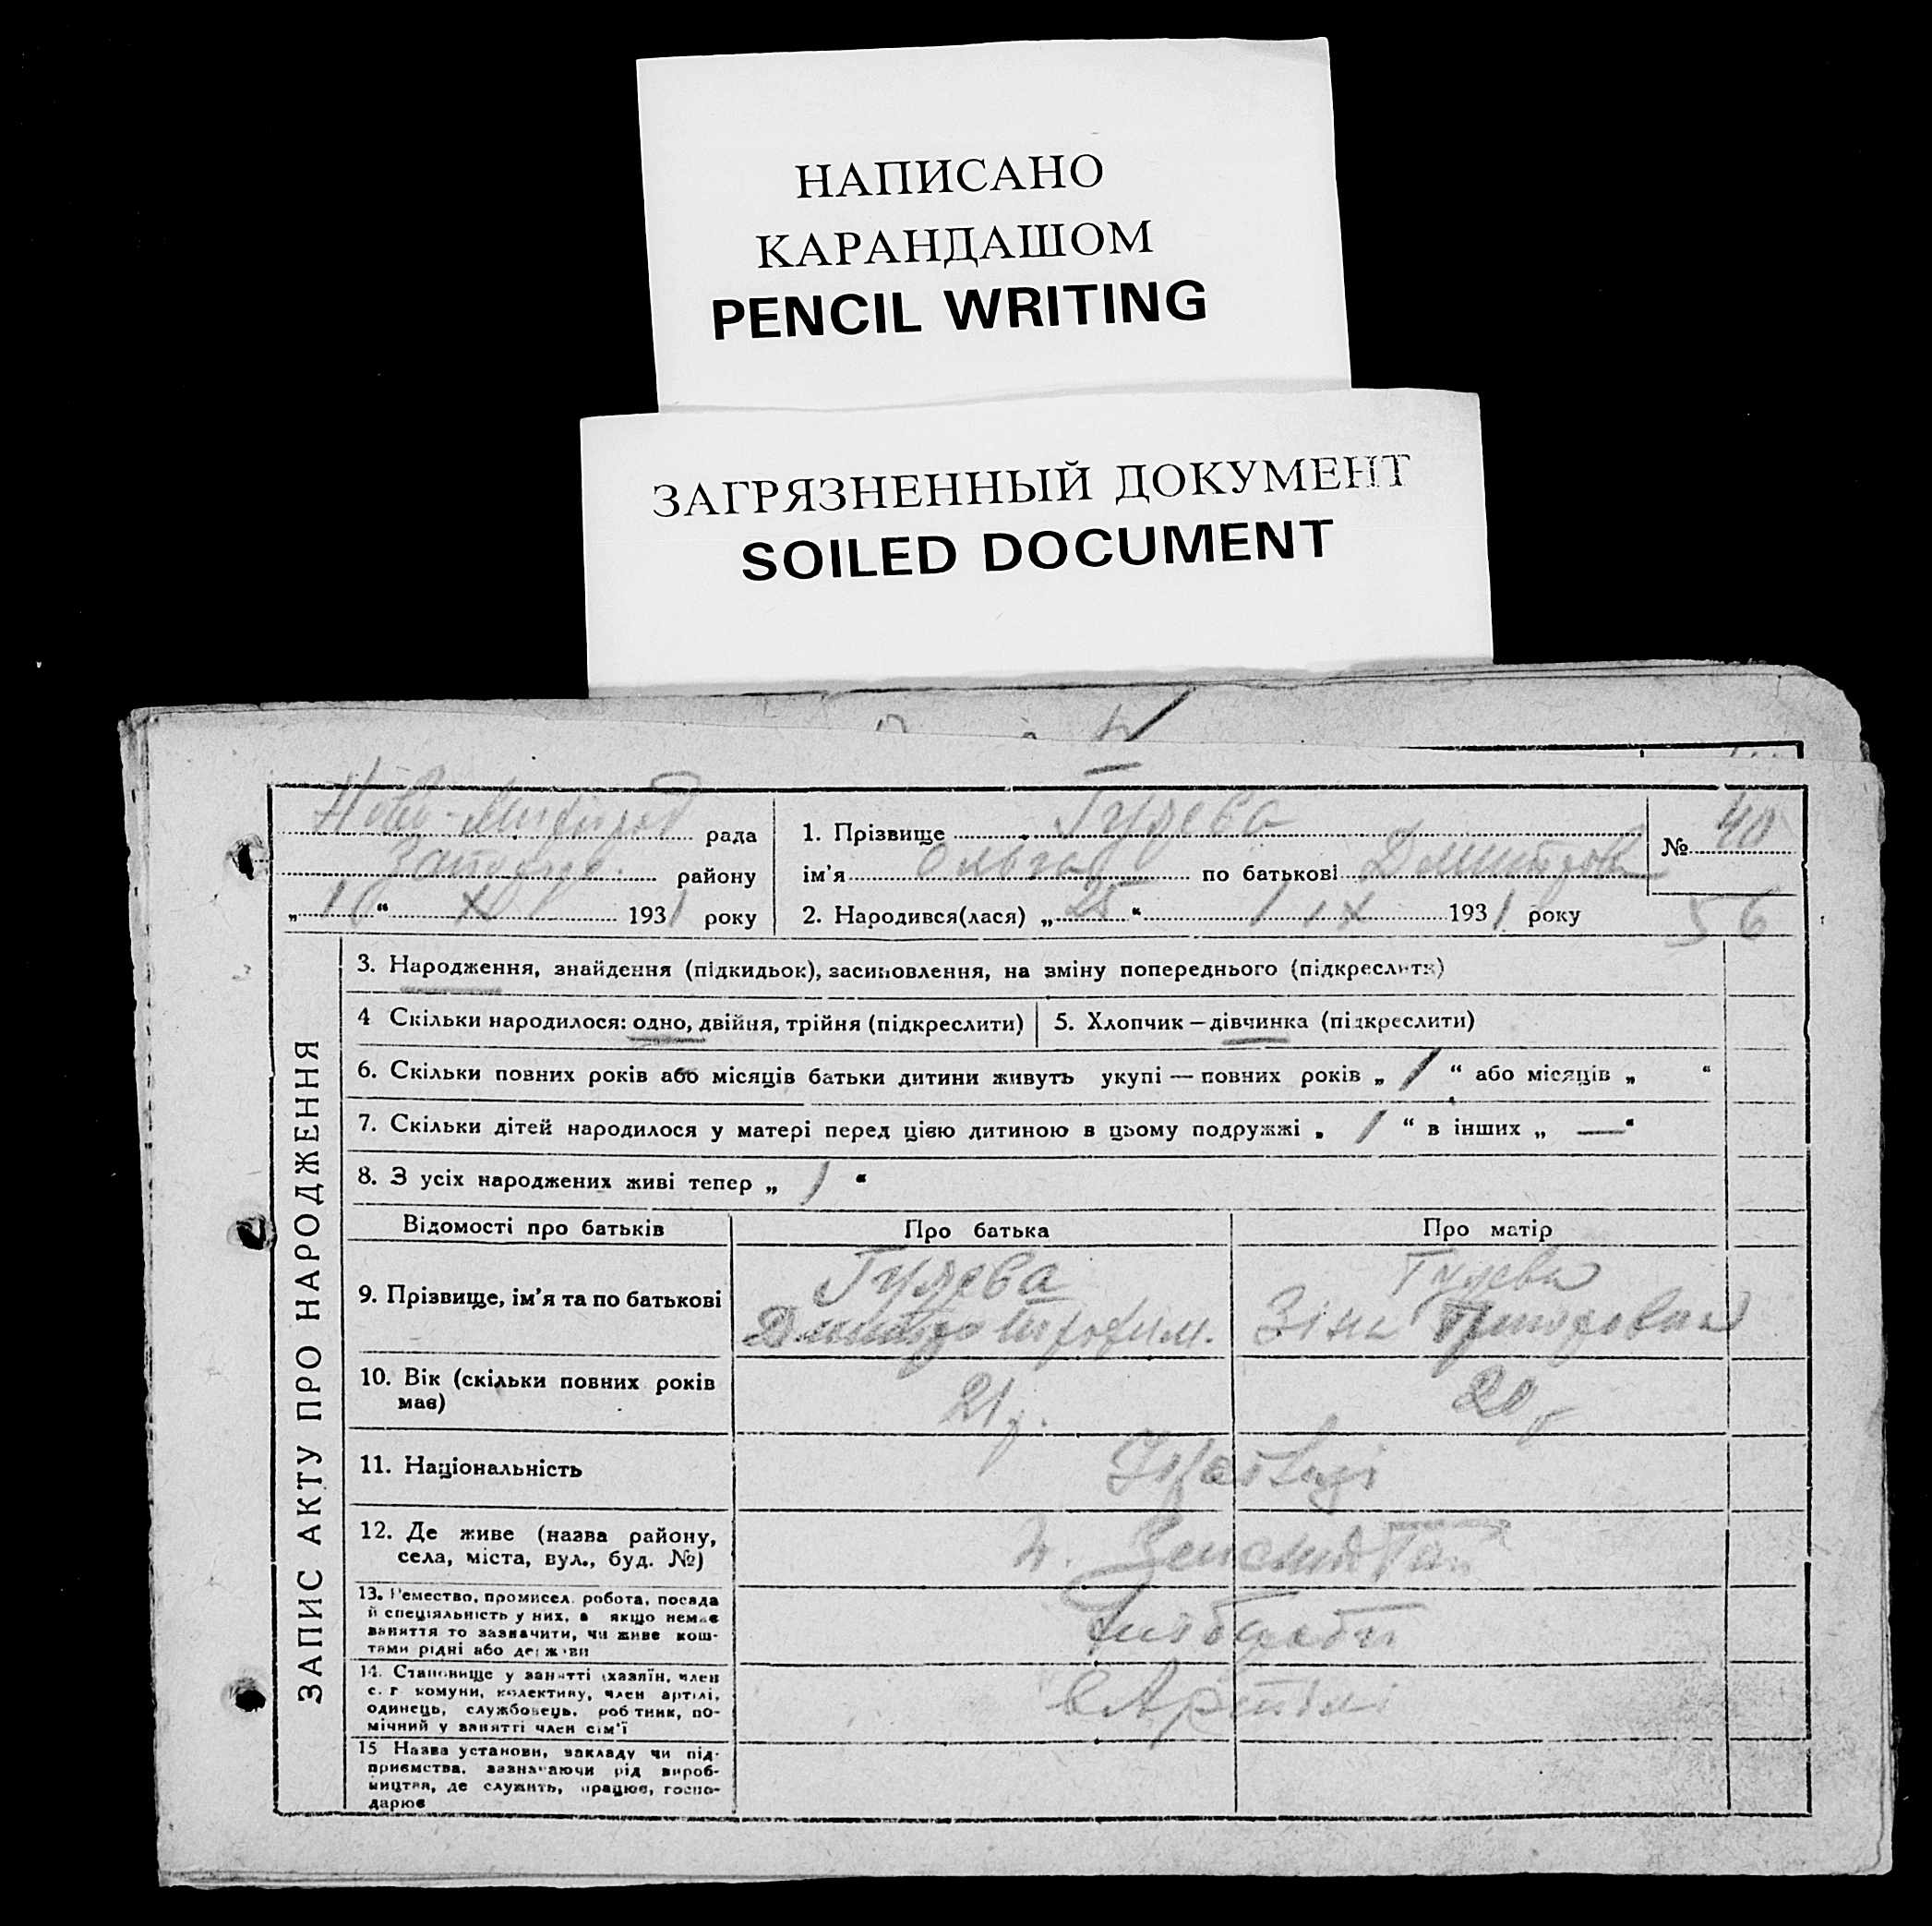 НАПИСАНО
КАРАНДАШОМ
PENCIL WRITING
ЗАГРЯЗНЕННЫЙ ДОКУМЕНТ
SOILED DOCUMENT
рада
району
„ 1931 року
1. Прізвище Гузева
ім'я Ольга по батькові Дмитров
2. Народився(лася) „25“ IX 1931 року
№ 40
56
ЗАПИС АКТУ ПРО НАРОДЖЕННЯ
3. Народження, знайдення (підкидьок), засиновлення, на зміну попереднього (підкреслити)
4 Скільки народилося: одно, двійня, трійня (підкреслити)
5. Хлопчик — дівчинка (підкреслити)
6. Скільки повних років або місяців батьки дитини живуть укупі — повних років „ 1 “ або місяців „ “
7. Скільки дітей народилося у матері перед цією дитиною в цьому подружжі „ 1 “ в інших „ — “
8. З усіх народжених живі тепер „ 1 “
Відомості про батьків Про батька Про матір
9. Прізвище, ім'я та по батькові
Гузева
Дмитро Трохим.
Гузева
Зіна
10. Вік (скільки повних років
має)
21 р.
20 р
11. Національність
12. Де живе (назва району,
села, міста, вул., буд. №)
13. Ремество, промисел, робота, посада
й спеціяльність у них, а якщо немає
заняття то зазначити, чи живе кош-
тами рідні або держави
14. Становище у занятті (хазяїн, член
с. г комуни, колективу, член артілі,
одинець, службовець, робітник, по-
мічний у занятті член сім'ї
в Артілі
15 Назва установи, закладу чи під-
приємства, зазначаючи рід вироб-
ництва, де служить, працює, госпо-
дарює